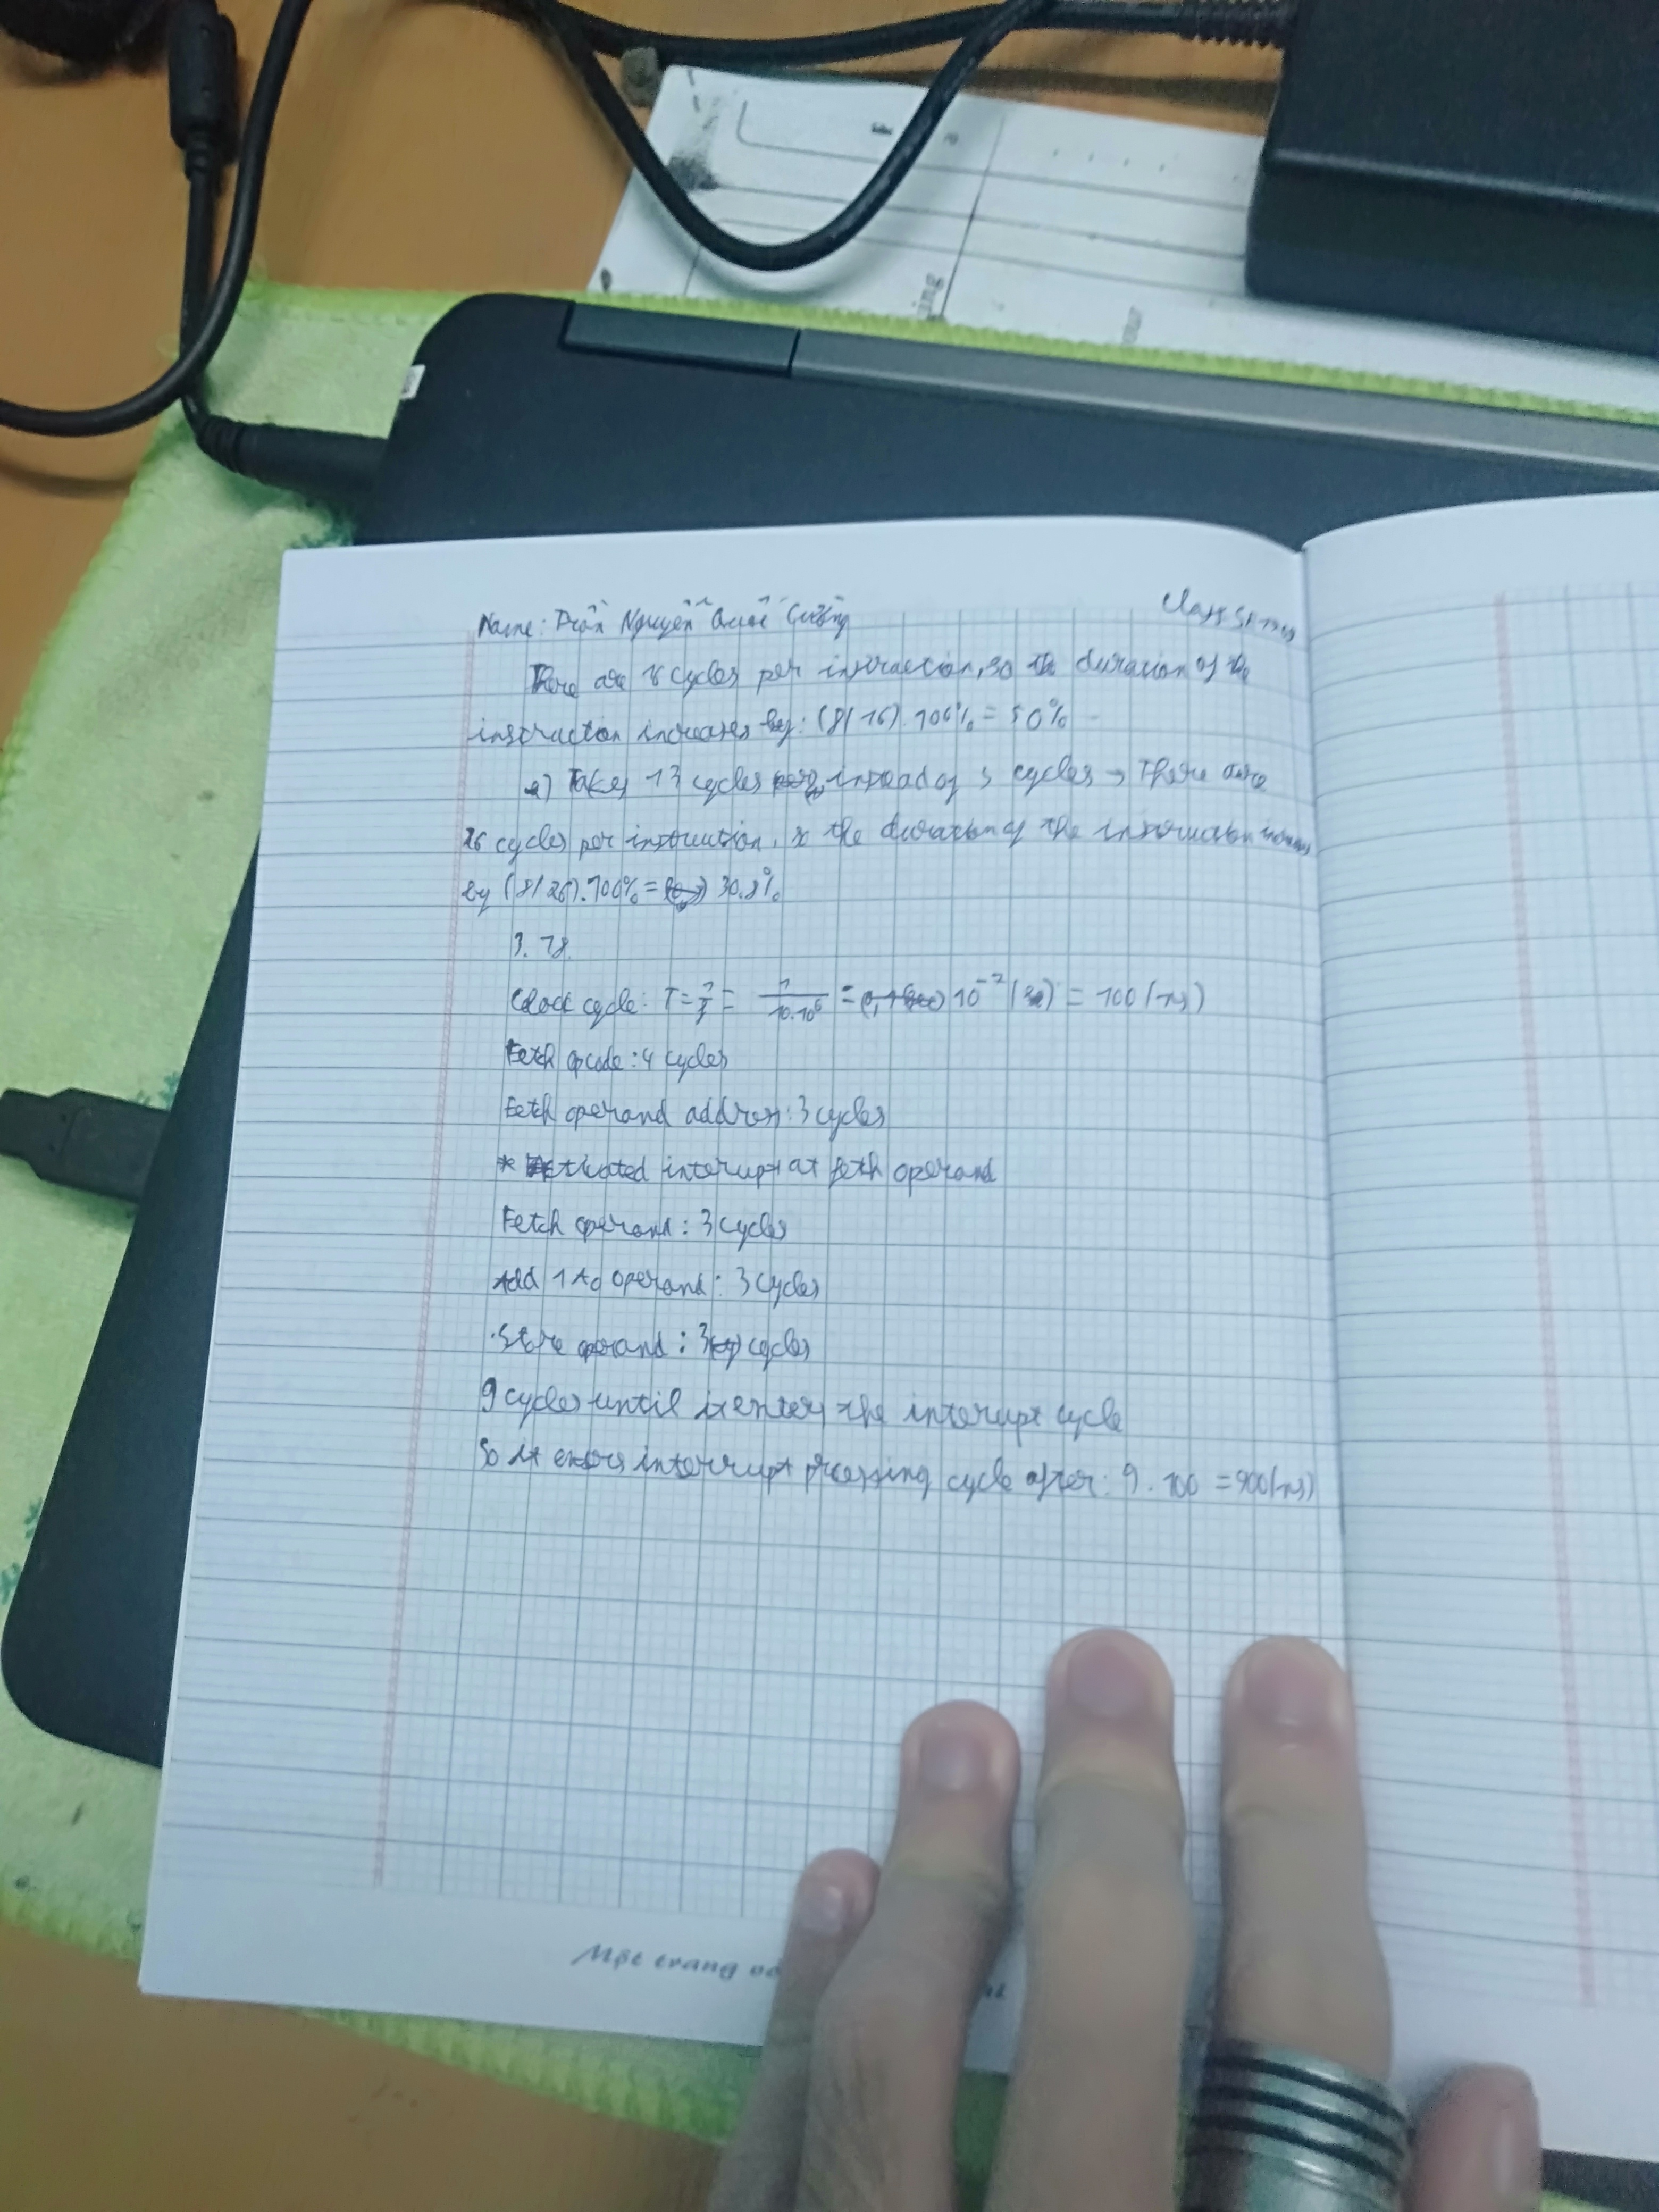 ing
our
Name: Trần Nguyễn Quốc Cường
Class
There are 16 cycles per instruction, so the duration of the
instruction increases by: (8/16).100% = 50%
Takes 13 cycles instead of 5 cycles → There are
26 cycles per instruction, so the duration of the instruction increases
by (8/26).100% = 30.8%
3.18.
Clock cycle: T = 1/f = 1/10.10^6 = 10^-7 (s) = 100 (ns)
Fetch opcode: 4 cycles
Fetch operand address: 3 cycles
* interupt at feth operand
Fetch operand: 3 cycles
Add 1 to operand: 3 cycles
Store operand: 3 cycles
9 cycles until it enters the interupt cycle
So it enters interrupt cycle after: 9.100 = 900(ns)
Một trang